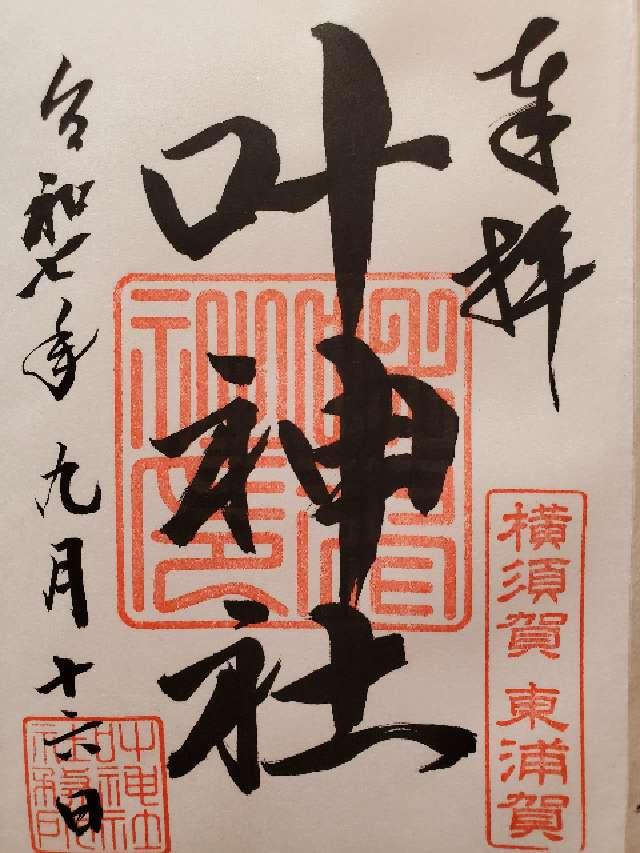 奉拝
横須賀 東浦賀
叶神社
令和七年九月十六日
叶神社